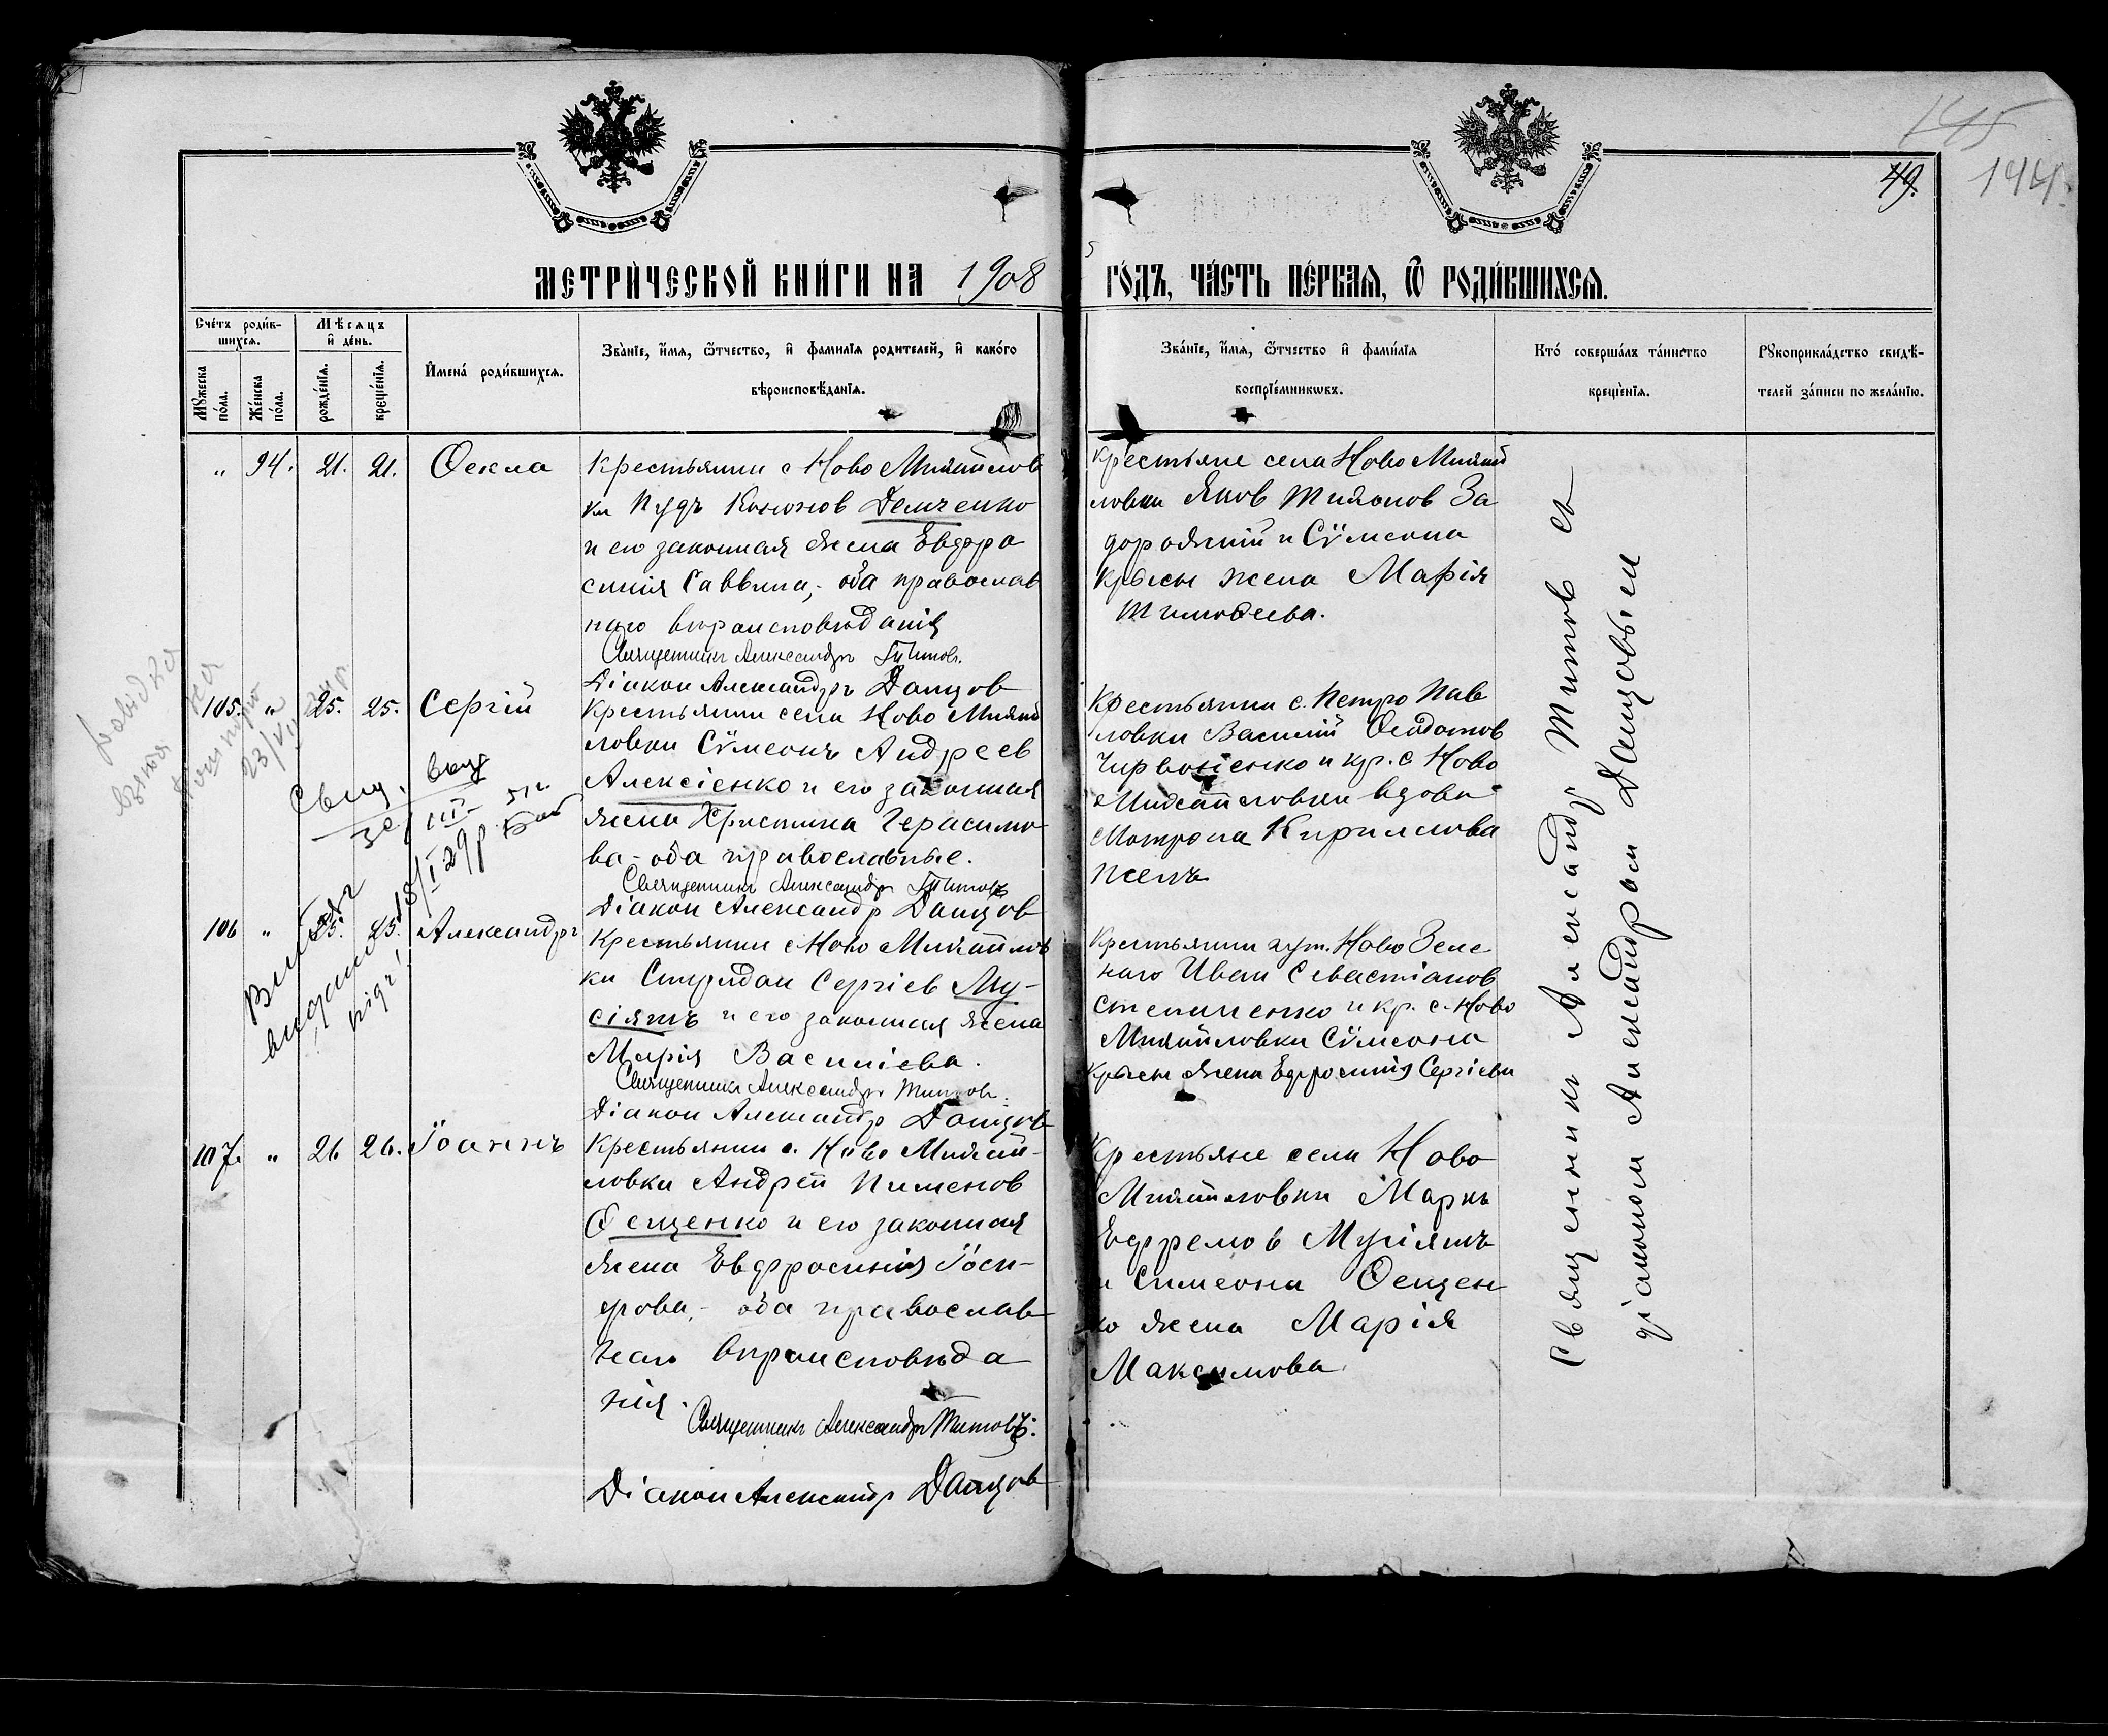 145
144.
49.
МЕТРИ́ЧЕСКОЙ КНИ́ГИ НА 1908
ГО́ДЪ, ЧА́СТЬ ПЕ́РВАЯ, Ѿ РОДИ́ВШИХСЯ.
Сче́тъ роди́в-
шихся.
Мѣсяцъ
и де́нь.
Му́жеска
по́ла.
Же́нска
по́ла.
рожде́нїя.
креще́нїя.
И҆мена́ роди́вшихся.
Зва́нїе, и҆́мя, ѻ҆́тчество, и҆ фамилїя родителей, и҆ како́го
вѣроисповѣ́данїя.
Зва́нїе, и҆́мя, ѻ҆́тчество и҆ фами́лїя
воспрїе́мникѡвъ.
Кто́ соверша́лъ та́инство
креще́нїя.
Рукоприкла́дство свидѣ́-
телей за́писи по жела́нїю.
„ 94. 21. 21. Ѳекла
Крестьянин с Ново Михайлов
ки Пудъ Кононов Демченко
и его законная жена Евфро
синія Саввина, оба православ
наго вѣроисповѣданія
Священникъ Александръ Титовъ.
Діакон Александръ Данцов
Крестьяне села Ново Михай
ловки Яков Тихонов За
дорожній и Сѵмеона
жена Марія
Тимоѳеева.
105. „ 25. 25. Сергій
Крестьянин села Ново Михай
ловки Сѵмеонъ Андреев
Алексіенко и его законная
жена Христина Герасимо-
ва - оба православные.
Священникъ Александръ Титовъ
Діакон Александр Данцов
Крестьянин с. Петро Пав
ловки Василій Ѳеодотов
и кр. с Ново
Михайловки вдова
Матрона Кирилова
106 „ 25. 25. Александръ
Крестьянин с Ново Михайлов
ки Спиридон Сергіев Му-
сіятъ и его законная жена
Марія Василіева.
Священникъ Александръ Титовъ.
Діакон Александр Данцов
Крестьянин хут. Ново Зеле
наго Иван Севастіанов
Степаненко и кр. с. Ново
Михайловки Сѵмеона
жена Ефросинія Сергіева
107. „ 26 26. Іоаннъ
Крестьянин с. Ново Михай-
ловки Андрей Пименов
Ѳещенко и его законная
жена Евфросинія Іоси-
фова, - оба православ
наго вѣроисповѣда
нія.
Священникъ Александръ Титовъ.
Діакон Александр Данцов
Крестьяне села Ново
Михайловки Маркъ
Ефремов Мусіятъ
и Симеона Ѳещен
ко жена Марія
Максимова.
Священникъ Александр Титов съ
діаконом Александром Данцовым